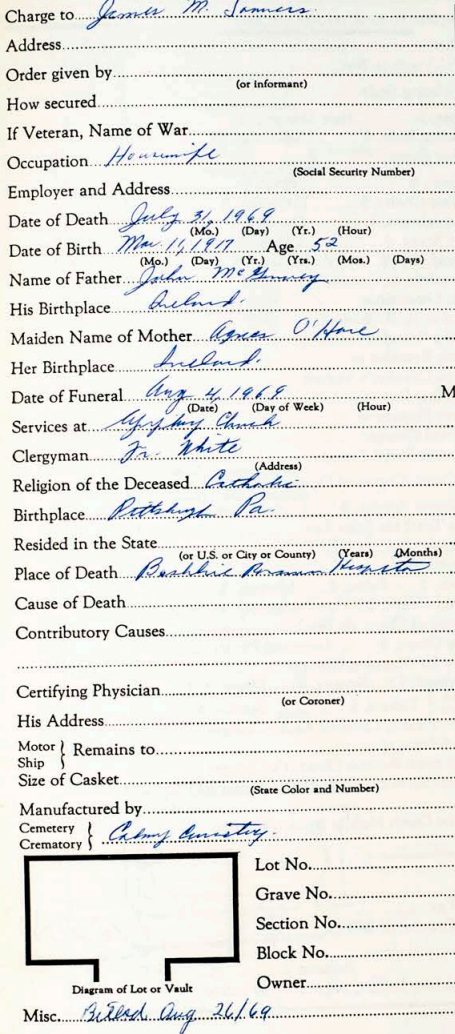 Charge to James M.
Address
Order given by
(or informant)
How secured
If Veteran, Name of War
Occupation Housewife
(Social Security Number)
Employer and Address
Date of Death July 31, 1969
(Mo.) (Day) (Yr.) (Hour)
Date of Birth Mar. 11, 1917 Age 52
(Mo.) (Day) (Yr.) (Yrs.) (Mos.) (Days)
Name of Father John
His Birthplace Ireland.
Maiden Name of Mother Agnes O'Hare
Her Birthplace Ireland.
Date of Funeral Aug 4, 1969 M
(Date) (Day of Week) (Hour)
Services at Church
Clergyman Fr. White
(Address)
Religion of the Deceased Catholic
Birthplace Pittsburgh Pa.
Resided in the State
(or U.S. or City or County) (Years) (Months)
Place of Death Hospital
Cause of Death
Contributory Causes
Certifying Physician
(or Coroner)
His Address
Motor
Ship } Remains to
Size of Casket
(State Color and Number)
Manufactured by
Cemetery
Crematory } Cemetery.
Lot No.
Grave No.
Section No.
Block No.
Owner
Diagram of Lot or Vault
Misc. Billed Aug 26/69